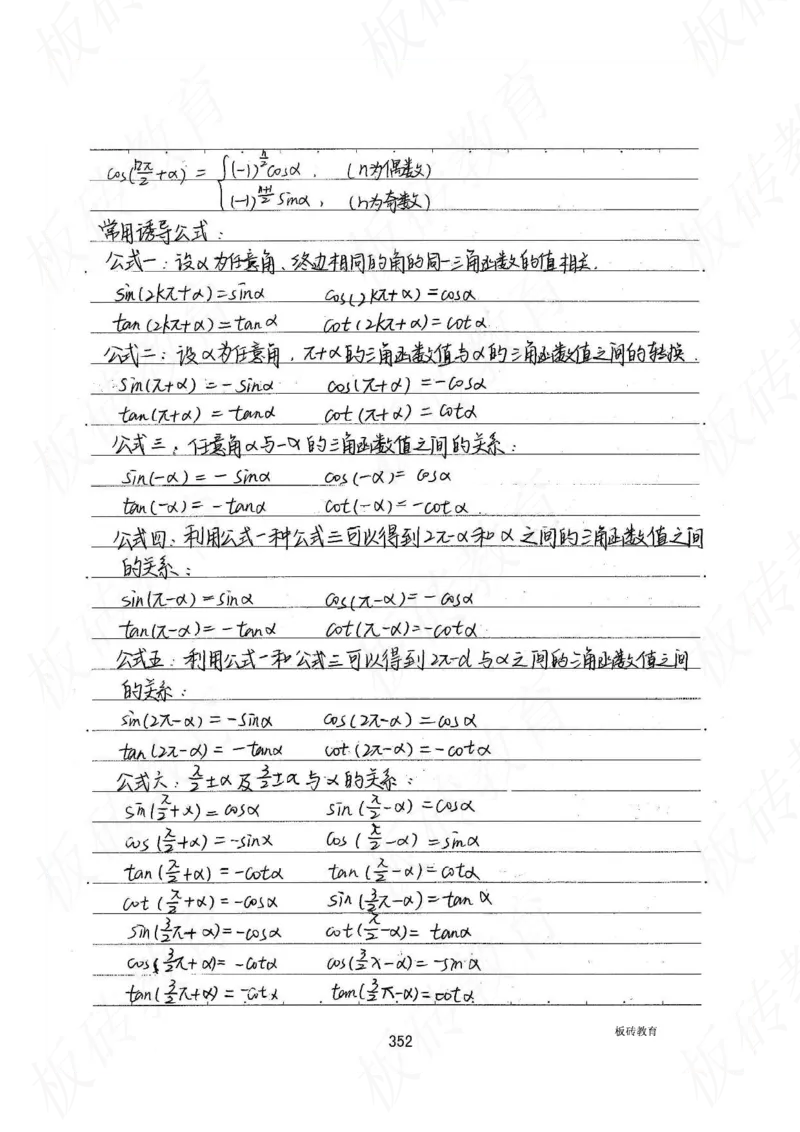 cos(nπ/2+α) = { (-1)^(n/2) cosα , (n为偶数)
(-1)^((n+1)/2) sinα , (n为奇数)
常用诱导公式:
公式一:设α为任意角、终边相同的角的同一三角函数的值相土.
sin(2kπ+α)=sinα cos(2kπ+α)=cosα
tan(2kπ+α)=tanα cot(2kπ+α)=cotα
公式二:设α为任意角,π+α的三角函数值与α的三角函数值之间的转换.
sin(π+α)=-sinα cos(π+α)=-cosα
tan(π+α)=tanα cot(π+α)=cotα
公式三:任意角α与-α的三角函数值之间的关系:
sin(-α)=-sinα cos(-α)=cosα
tan(-α)=-tanα cot(-α)=-cotα
公式四:利用公式一种公式三可以得到2π-α和α之间的三角函数值之间
的关系:
sin(π-α)=sinα cos(π-α)=-cosα
tan(π-α)=-tanα cot(π-α)=-cotα
公式五:利用公式一和公式三可以得到2π-α与α之间的三角函数值之间
的关系:
sin(2π-α)=-sinα cos(2π-α)=cosα
tan(2π-α)=-tanα cot(2π-α)=-cotα
公式六:π/2±α及3/2±α与α的关系:
sin(π/2+x)=cosα sin(π/2-α)=cosα
cos(π/2+α)=-sinx cos(π/2-α)=sinα
tan(π/2+α)=-cotα tan(π/2-α)=cotα
cot(π/2+α)=-cosα sin(3/2π-α)=tanα
sin(3/2π+α)=-cosα cot(π/2-α)=tanα
cos(3/2π+α)=-cotα cos(3/2π-α)=-sinα
tan(3/2π+α)=-cotx tan(3/2π-α)=cotα
板砖教育
352